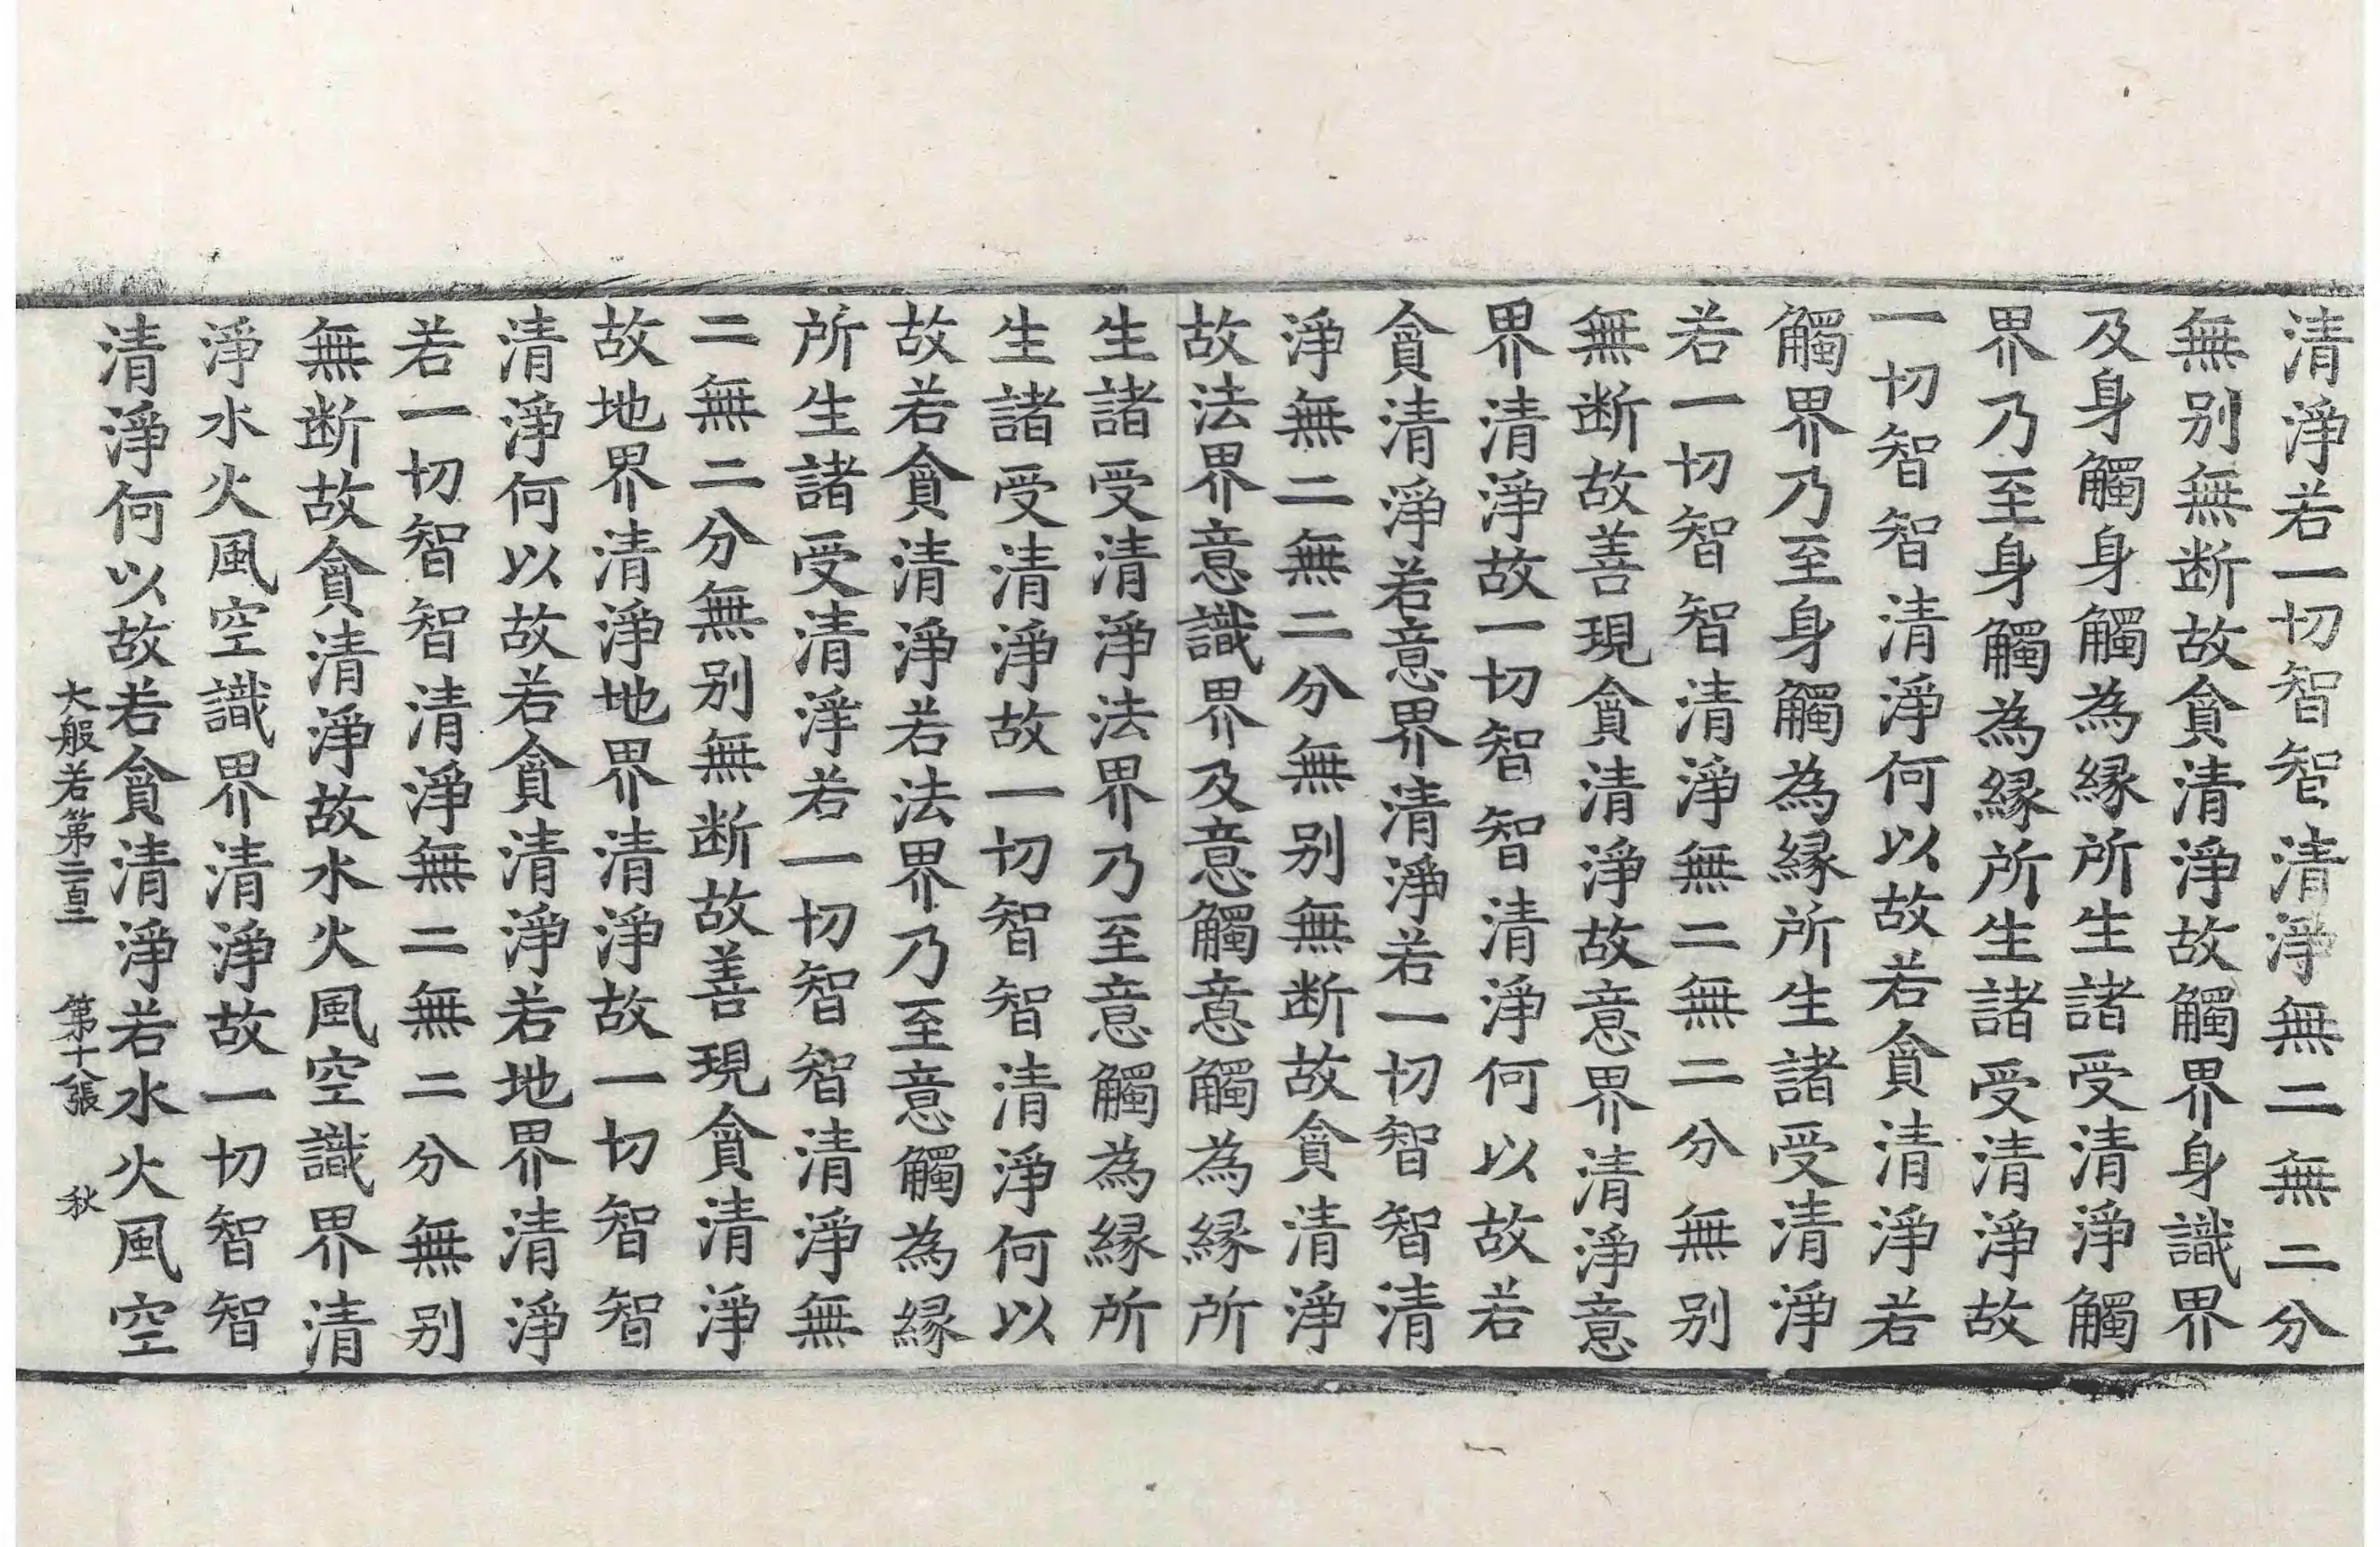 清淨若一切智智清淨無二無二分
無別無断故貪清淨故觸界身識界
及身觸身觸為縁所生諸受清淨觸
界乃至身觸為縁所生諸受清淨故
一切智智清淨何以故若貪清淨若
觸界乃至身觸為縁所生諸受清淨
若一切智智清淨無二無二分無別
無断故善現貪清淨故意界清淨意
界清淨故一切智智清淨何以故若
貪清淨若意界清淨若一切智智清
淨無二無二分無別無断故貪清淨
故法界意識界及意觸意觸為縁所
生諸受清淨法界乃至意觸為縁所
生諸受清淨故一切智智清淨何以
故若貪清淨若法界乃至意觸為縁
所生諸受清淨若一切智智清淨無
二無二分無別無断故善現貪清淨
故地界清淨地界清淨故一切智智
清淨何以故若貪清淨若地界清淨
若一切智智清淨無二無二分無別
無断故貪清淨故水火風空識界清
淨水火風空識界清淨故一切智智
清淨何以故若貪清淨若水火風空
大般若第二百二 第十八張 秋